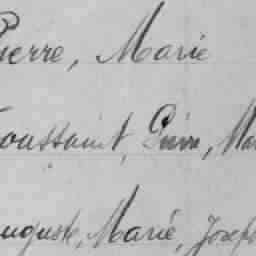 Pierre, Marie
Toussaint, Pierre, Mar
Auguste, Marie, Joseph